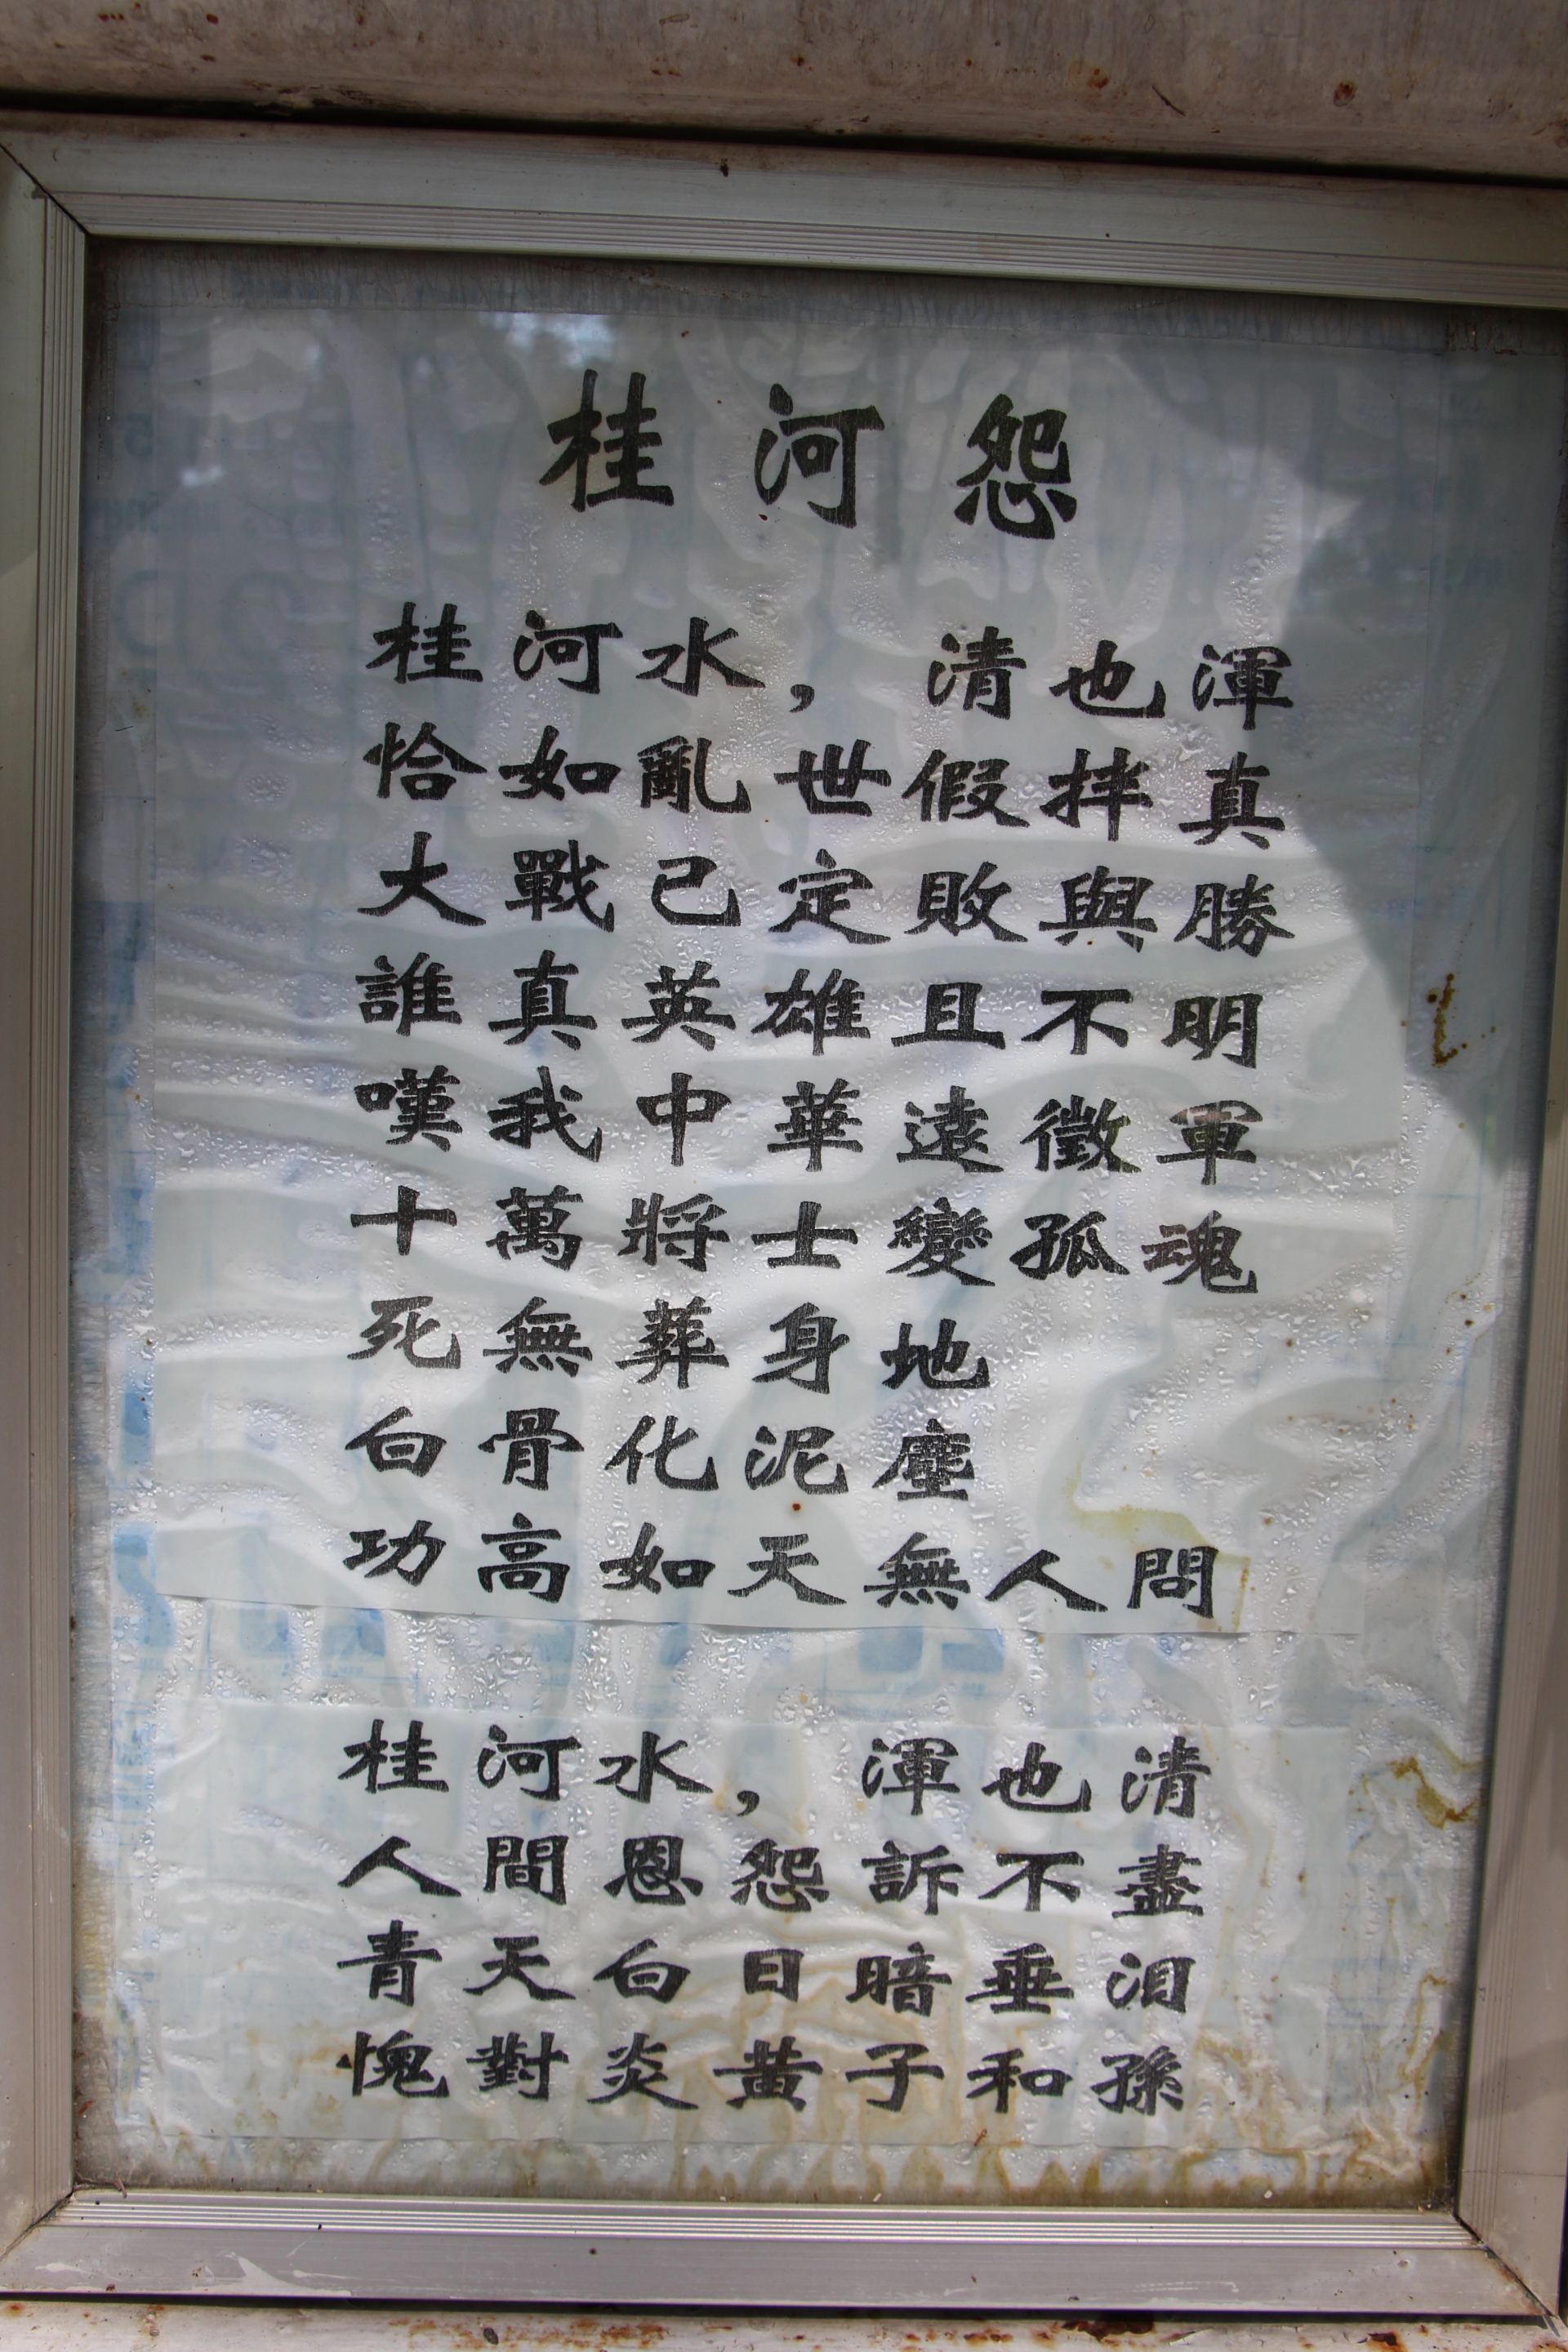 桂河怨
桂河水，清也渾
恰如亂世假拌真
大戰已定敗與勝
誰真英雄且不明
嘆我中華遠徵軍
十萬將士變孤魂
死無葬身地
白骨化泥塵
功高如天無人問
桂河水，渾也清
人間恩怨訴不盡
青天白日暗垂淚
愧對炎黃子和孫